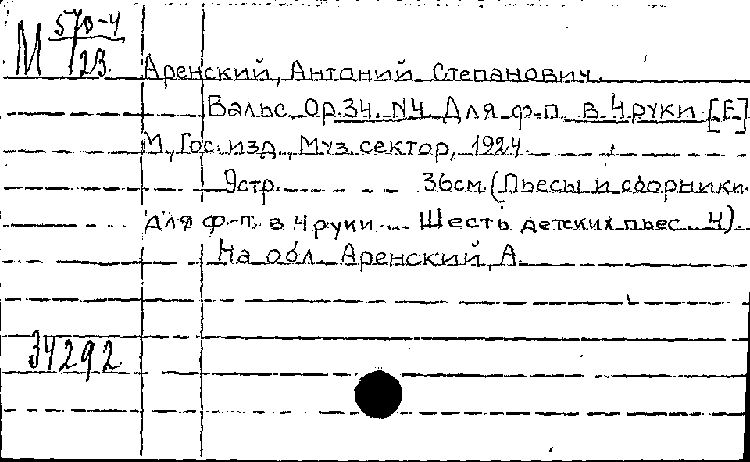 М 570-4
123
Аренский, Антоний Степанович.
Вальс. Ор.34. N4 Для ф-п. в 4 руки [F]
М., Гос. изд., Муз. сектор, 1924.
9стр. 36см. (Пьесы и сборники
для ф-п. в 4 руки. Шесть детских пьес. 4).
На обл. Аренский, А.
34292